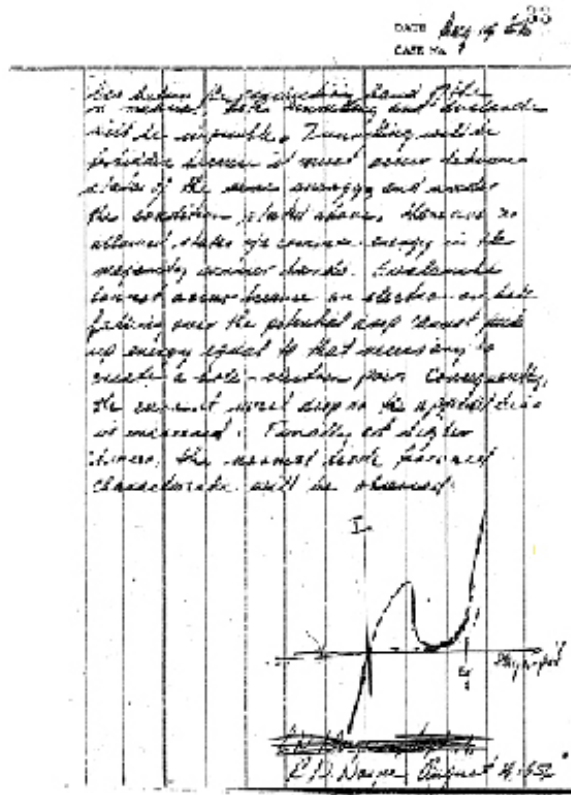 33
DATE Aug 14 56
CASE No. 1
lies below the conduction band of the
n material both tunnelling and avalanche
will be impossible. Tunnelling will be
forbidden because it must occur between
states of the same energy and under
the condition stated above, there are no
allowed states of common energy in the
majority carrier bands. Avalanche
cannot occur because an electron or hole
falling over the potential drop cannot pick
up energy equal to that necessary to
create a hole-electron pair. Consequently,
the current must drop as the applied bias
is increased. Finally at higher
biases, the normal diode forward
characteristic will be observed.
I
August 14, 1956